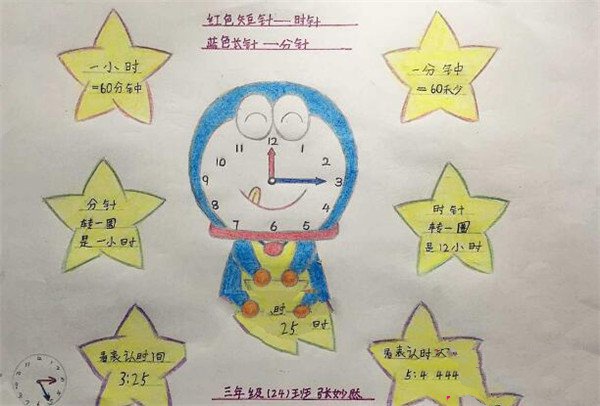 红色短针——时针
蓝色长针—分针
一小时
=60分钟
一分钟
=60秒
11 12 1
10 2
9 3
8 4
7 6 5
分针
转一圈
是一小时
时针
转一圈
是12小时
时
25 时
看表认时间
3:25
看表认时
5:4 444
三年级(24)班 张妙